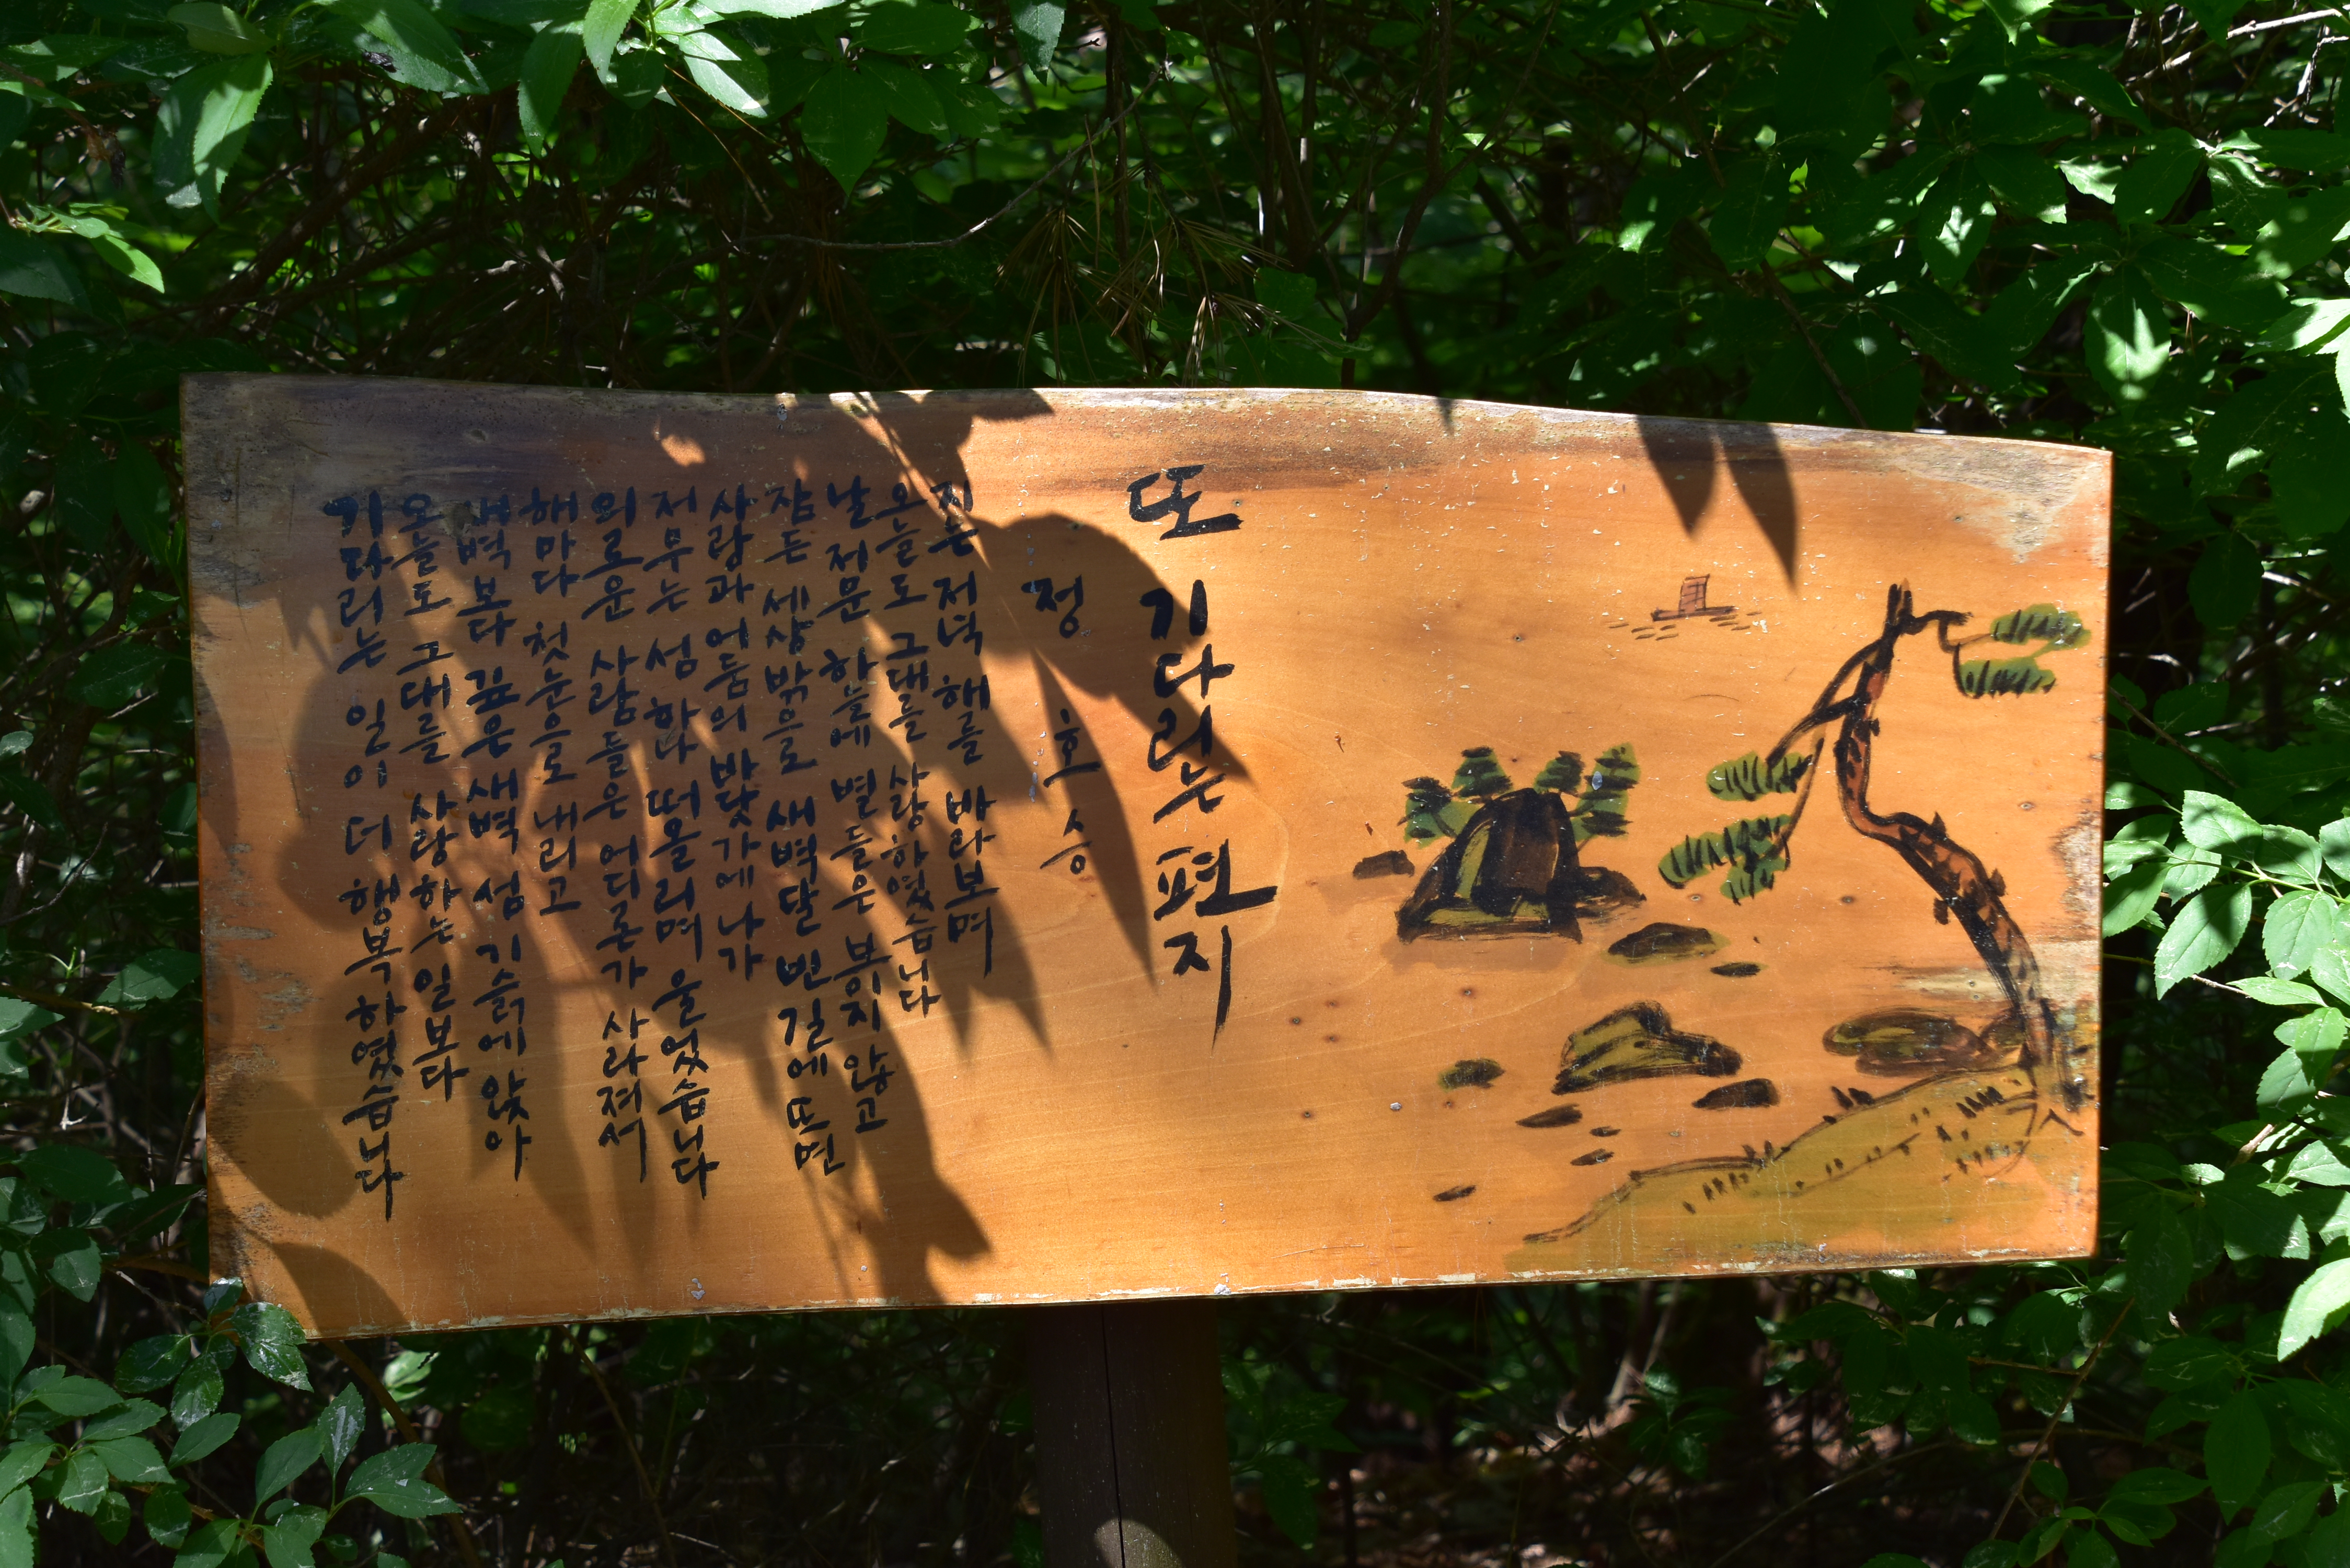 또 기다리는 편지
정호승
지는 저녁 해를 바라보며
오늘도 그대를 사랑하였습니다
날 저문 하늘에 별들은 뵈지 않고
잠든 세상밖으로 새벽달 빈 길에 뜨면
사랑과 어둠의 바닷가에 나가
저무는 섬 하나 떠올리며 울었습니다
외로운 사람들은 어디론가 사라져서
해마다 첫눈으로 내리고
새벽보다 깊은 새벽 섬 기슭에 앉아
오늘도 그대를 사랑하는 일보다
기다리는 일이 더 행복하였습니다